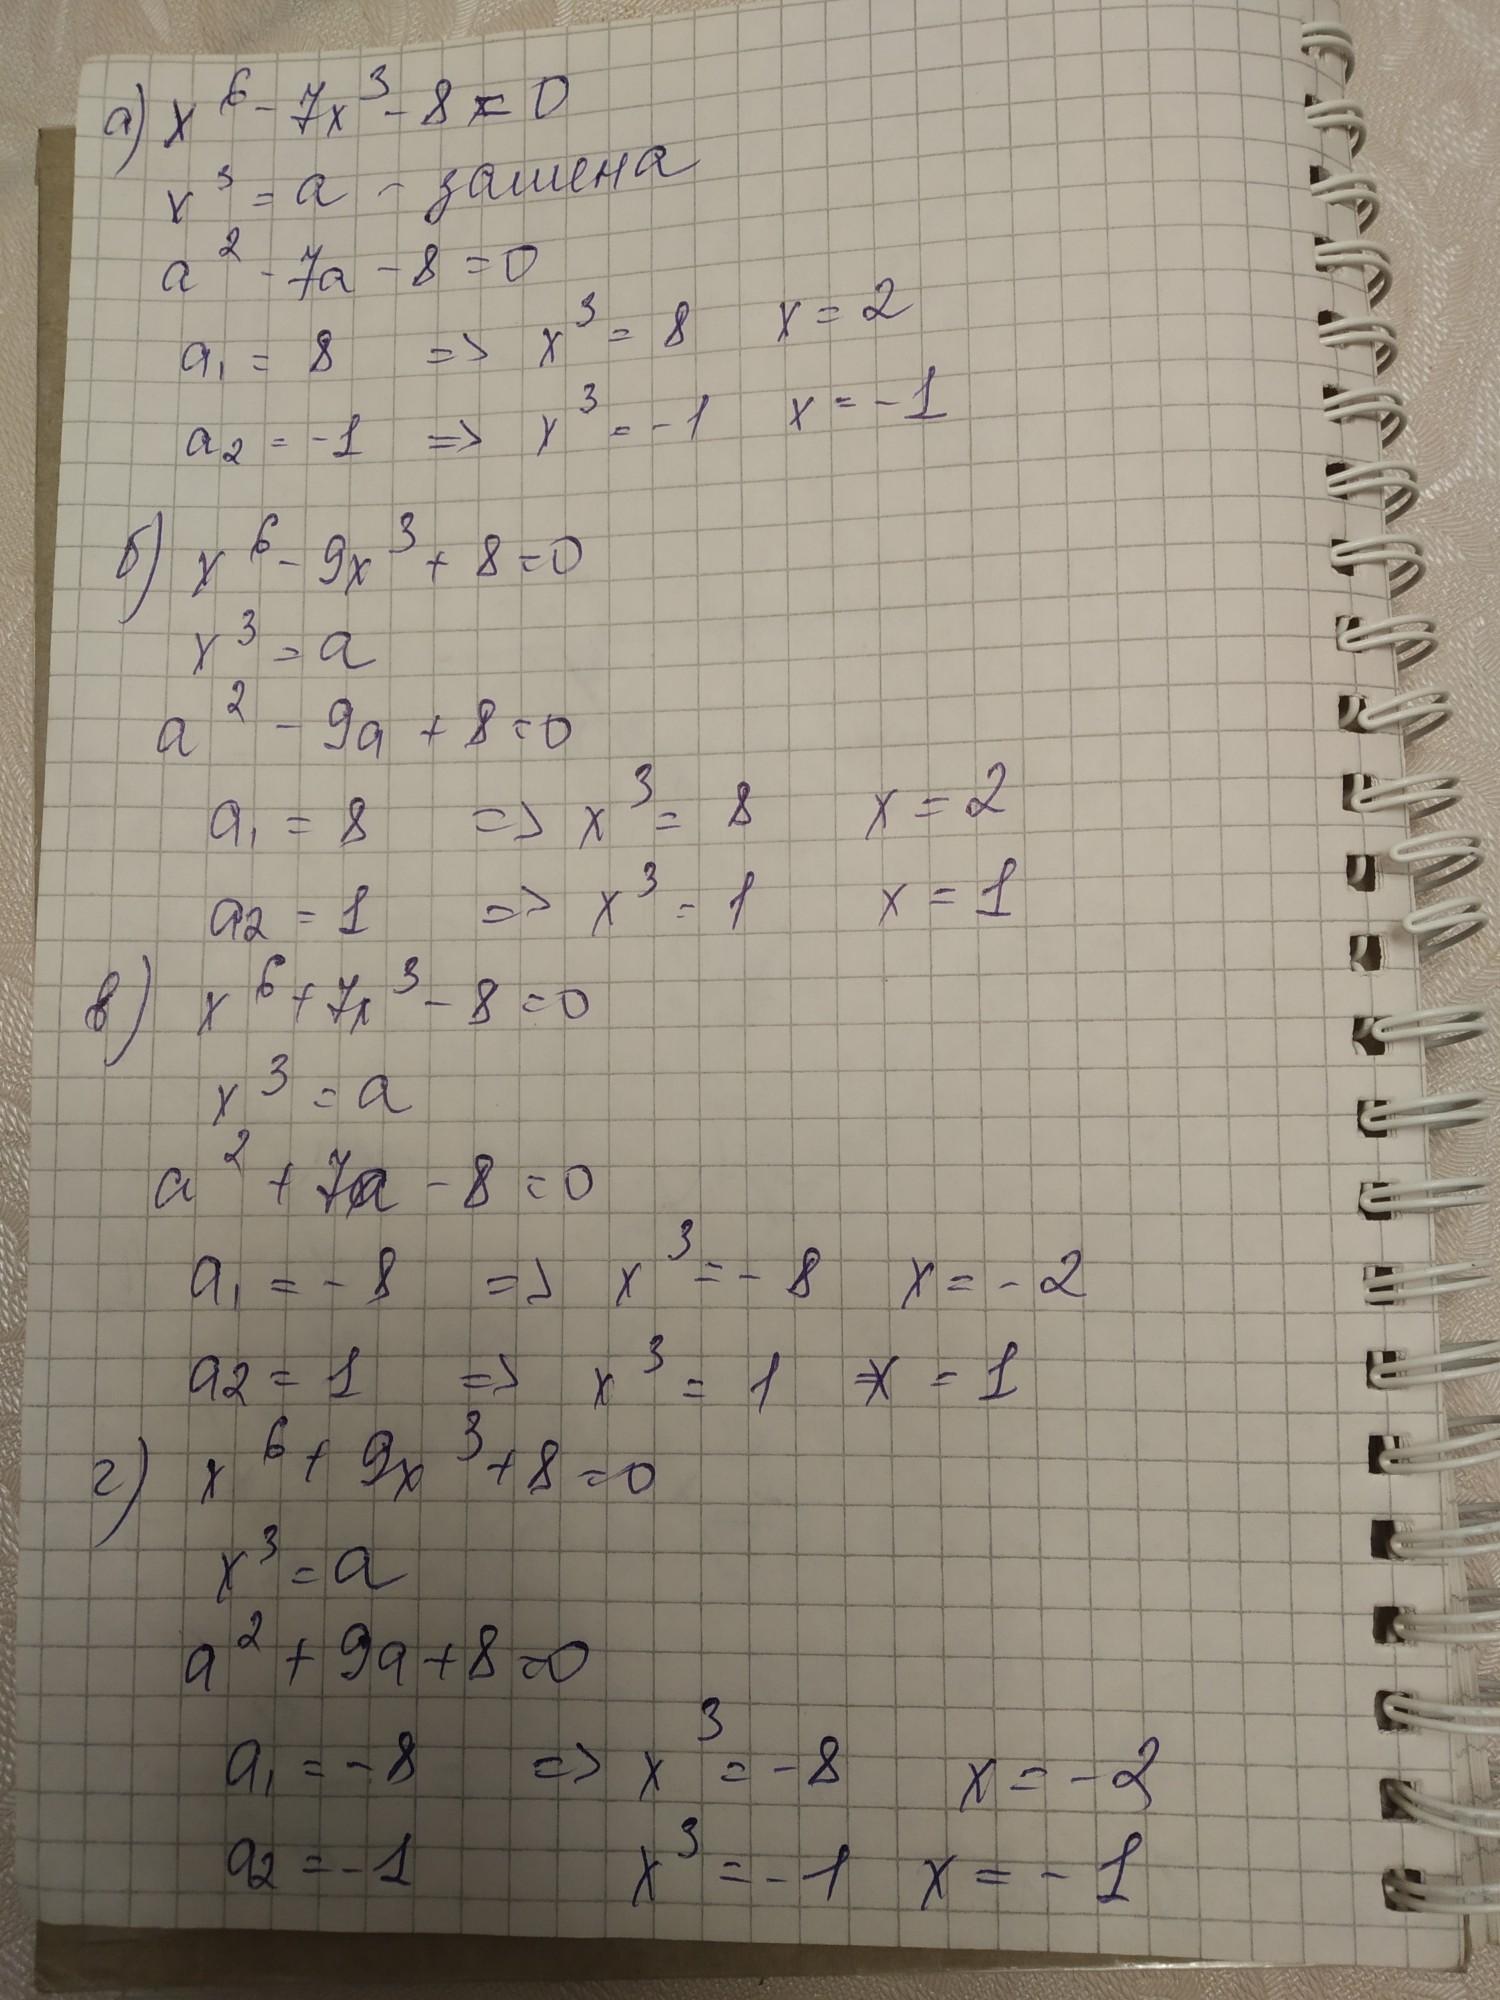 а) x⁶ - 7x³ - 8 = 0
x³ = a - замена
a² - 7a - 8 = 0
a₁ = 8 => x³ = 8 x = 2
a₂ = -1 => x³ = -1 x = -1
б) x⁶ - 9x³ + 8 = 0
x³ = a
a² - 9a + 8 = 0
a₁ = 8 => x³ = 8 x = 2
a₂ = 1 => x³ = 1 x = 1
в) x⁶ + 7x³ - 8 = 0
x³ = a
a² + 7a - 8 = 0
a₁ = -8 => x³ = -8 x = -2
a₂ = 1 => x³ = 1 x = 1
г) x⁶ + 9x³ + 8 = 0
x³ = a
a² + 9a + 8 = 0
a₁ = -8 => x³ = -8 x = -2
a₂ = -1 x³ = -1 x = -1